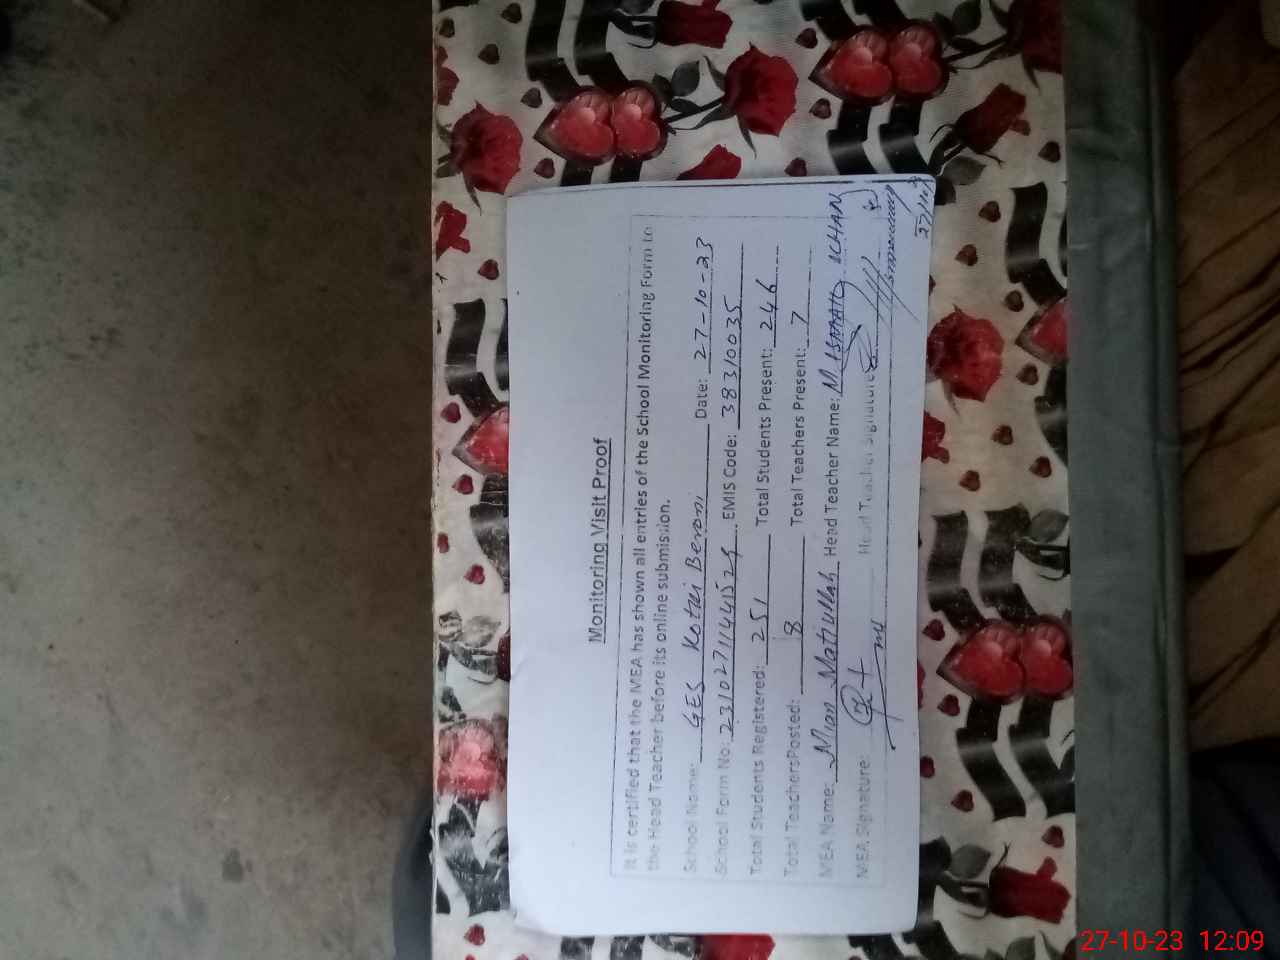 Monitoring Visit Proof
It is certified that the MEA has shown all entries of the School Monitoring Form to
the Head Teacher before its online submission.
School Name: GES Kotki Beroni Date: 27-10-23
School Form No: 231027114415 EMIS Code: 38310035
Total Students Registered: 251 Total Students Present: 246
Total Teachers Posted: 8 Total Teachers Present: 7
MEA Name: Mian Matiullah Head Teacher Name: M. ISMAIL KHAN
MEA Signature: Head Teacher Signature
27/10/23
27-10-23 12:09